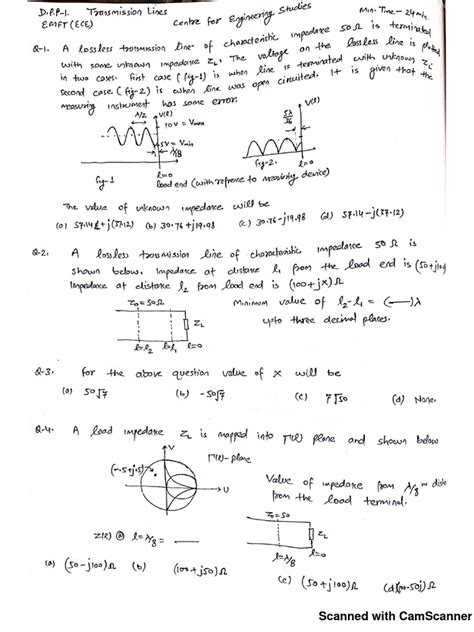 D.P.P-1. Transmission Lines
EMFT (ECE)
Centre for Engineering Studies
Min. Time - 24 min.
Q-1. A lossless transmission line of characteristic impedance 50 Ω is terminated
with some unknown impedance ZL. The voltage on the lossless line is plotted
in two cases. First case (fig-1) is when line is terminated with unknown ZL
second case (fig-2) is when line was open circuited. It is given that the
measuring instrument has some error.
λ/2 V(l)
10V = Vmax
5V = Vmin
λ/8
l=0
fig-1
load end (with refrence to measuring device)
5λ/36 V(l)
fig-2. l=0
The value of unknown impedance will be
(a) 57.14+j(37.12) (b) 30.76+j19.98 (c) 30.76-j19.98 (d) 57.14-j(37.12)
Q-2. A lossless transmission line of characteristic impedance 50 Ω is
shown below. Impedance at distance l1 from the load end is (50+j10
Impedance at distance l2 from load end is (100+jX)Ω
Z0=50Ω
ZL
l=l2 l=l1 l=0
Minimum value of l2-l1 = (—)λ
upto three decimal places.
Q-3. For the above question value of X will be
(a) 50√7 (b) -50√7 (c) 7√50 (d) None.
Q-4. A load impedance ZL is mapped into Γ(l) plane and shown below
Γ(l)-plane
V
(-.5+j.5)
U
Value of impedance from λ/8
from the load terminal.
Z0=50
ZL
l=λ/8 l=0
Z(l) @ l=λ/8 = ___
(a) (50-j100)Ω (b) (100+j50)Ω
(c) (50+j100)Ω (d) (100-50j)Ω
Scanned with CamScanner